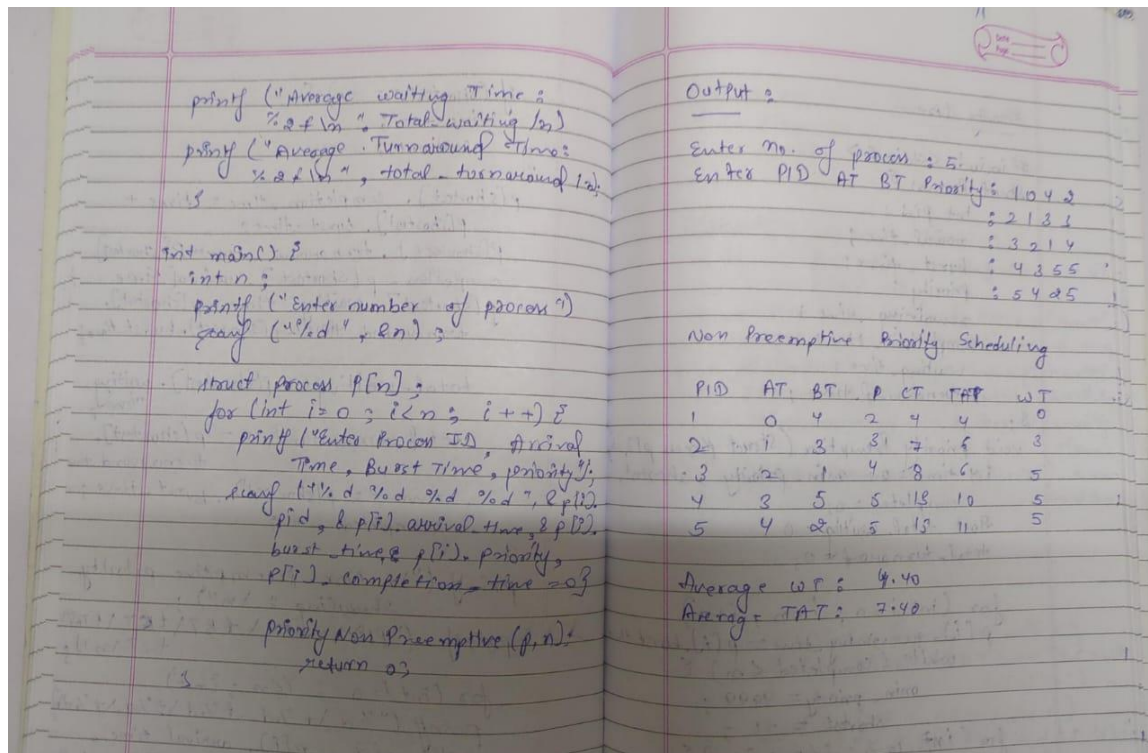 printf ("Average waiting Time :
%.2f \n ", Total-waiting /n)
printf ("Average . Turnaround Time:
%.2f \n ", total-turnaround /n);
}
int main() {
int n ;
printf ("Enter number of process")
scanf ("%d" , &n) ;
struct process P[n] ;
for (int i=0 ; i<n ; i++) {
printf ("Enter Process ID, Arrival
Time, Burst Time, priority");
scanf ("%d %d %d %d ", &p[i].
pid, & p[i]. arrival-time, & p[i].
burst-time, & p[i]. priority,
P[i]. completion_time =0}
priority Non Preemptive (p,n);
return 0;
}
Date
Page
Output :
Enter no. of process : 5
Enter PID AT BT Priority : 1 0 4 2
: 2 1 3 3
: 3 2 1 4
: 4 3 5 5
: 5 4 2 5
Non Preemptive Priority Scheduling
PID AT BT P CT TAT WT
1 0 4 2 4 4 0
2 1 3 3 7 6 3
3 2 1 4 8 6 5
4 3 5 5 13 10 5
5 4 2 5 15 11 5
Average WT : 4.40
Average TAT : 7.40